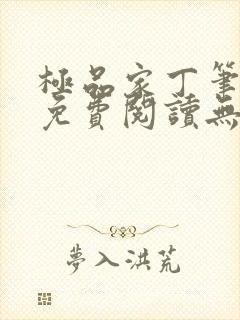 極品家丁筆
免費閱讀無
夢入洪荒